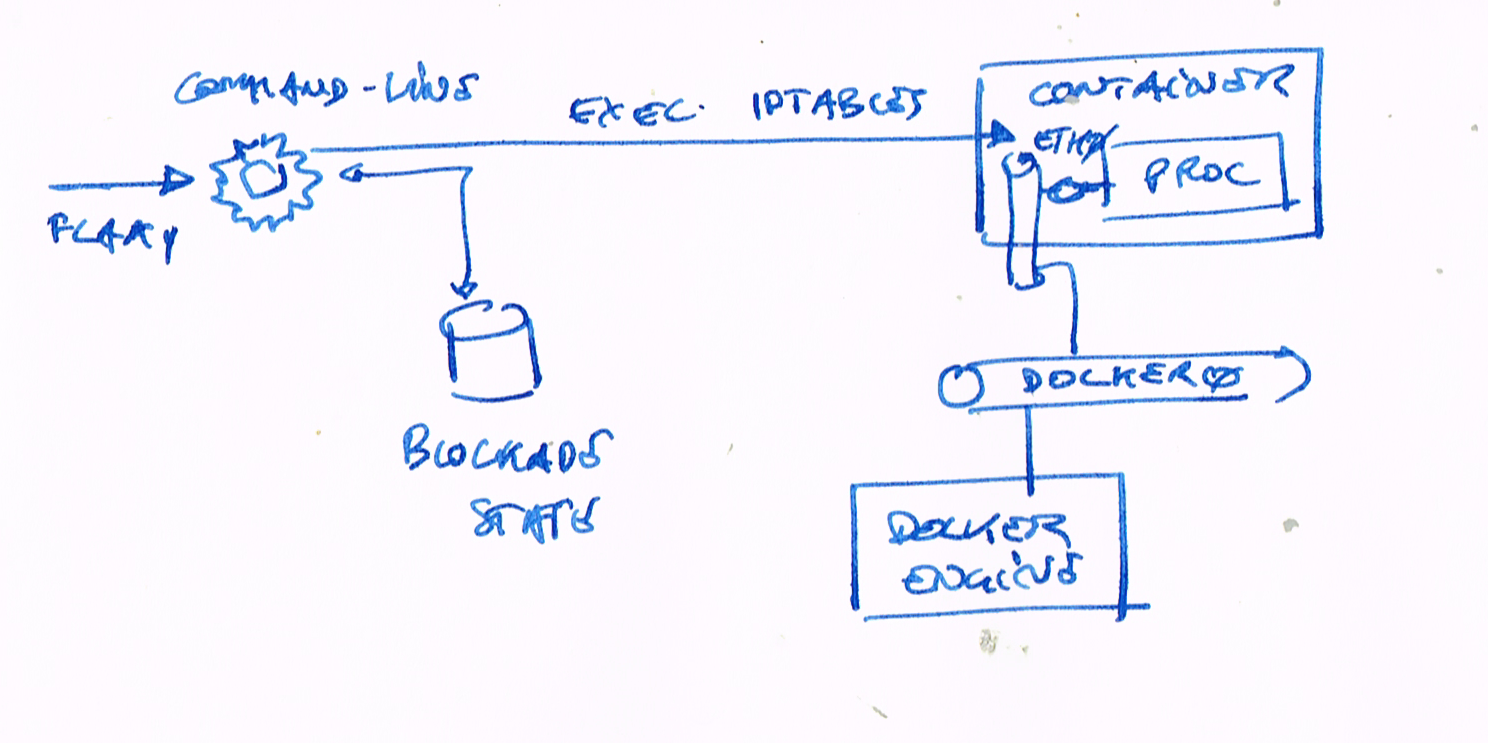 COMMAND-LINE
EXEC. IPTABLES
CONTAINER
ETH0
PROC
FLAKY
DOCKER0
BLOCKADE
STATE
DOCKER
ENGINE